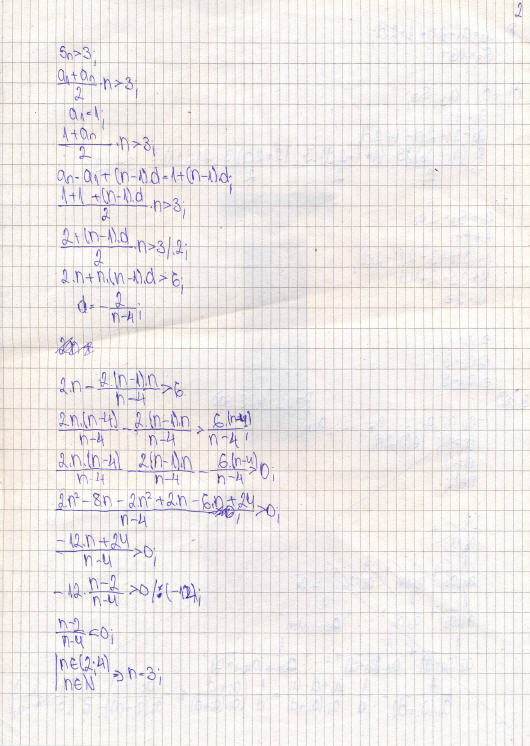 2
Sn>3;
(a1+an)/2 · n>3;
a1=1;
(1+an)/2 · n>3;
an=a1+(n-1).d=1+(n-1).d;
(1+1+(n-1).d)/2 · n>3;
(2+(n-1).d)/2 · n>3/.2;
2.n+n.(n-1).d>6;
d=-2/(n-4);
2.n-(2.(n-1).n)/(n-4)>6
(2n.(n-4))/(n-4)-(2.(n-1).n)/(n-4)>(6.(n-4))/(n-4);
(2.n.(n-4))/(n-4)-(2(n-1).n)/(n-4)-(6.(n-4))/(n-4)>0;
(2n²-8n-2n²+2.n-6.n+24)/(n-4)>0;
(-12.n+24)/(n-4)>0;
-12.(n-2)/(n-4)>0/:(-12);
(n-2)/(n-4)<0;
|n∈(2;4)
|n∈N ⇒ n=3;